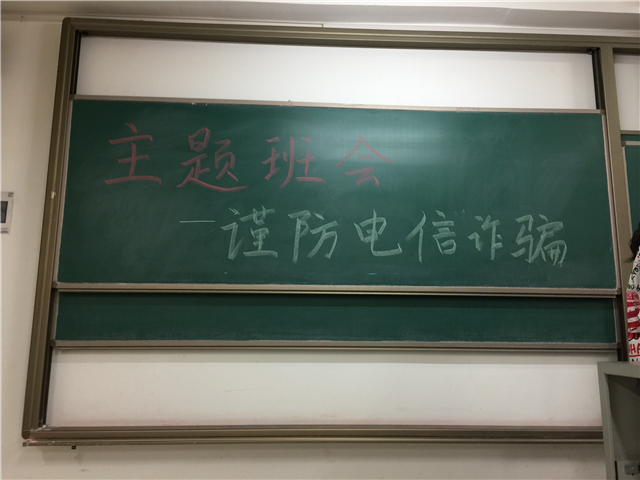 主题班会
—谨防电信诈骗